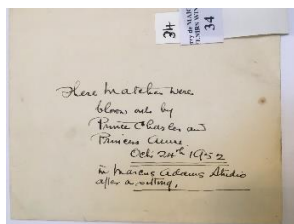 34
34
These matches were
blown out by
Prince Charles and
Princess Anne
Oct 24th 1952
in Marcus Adams Studio
after a sitting.